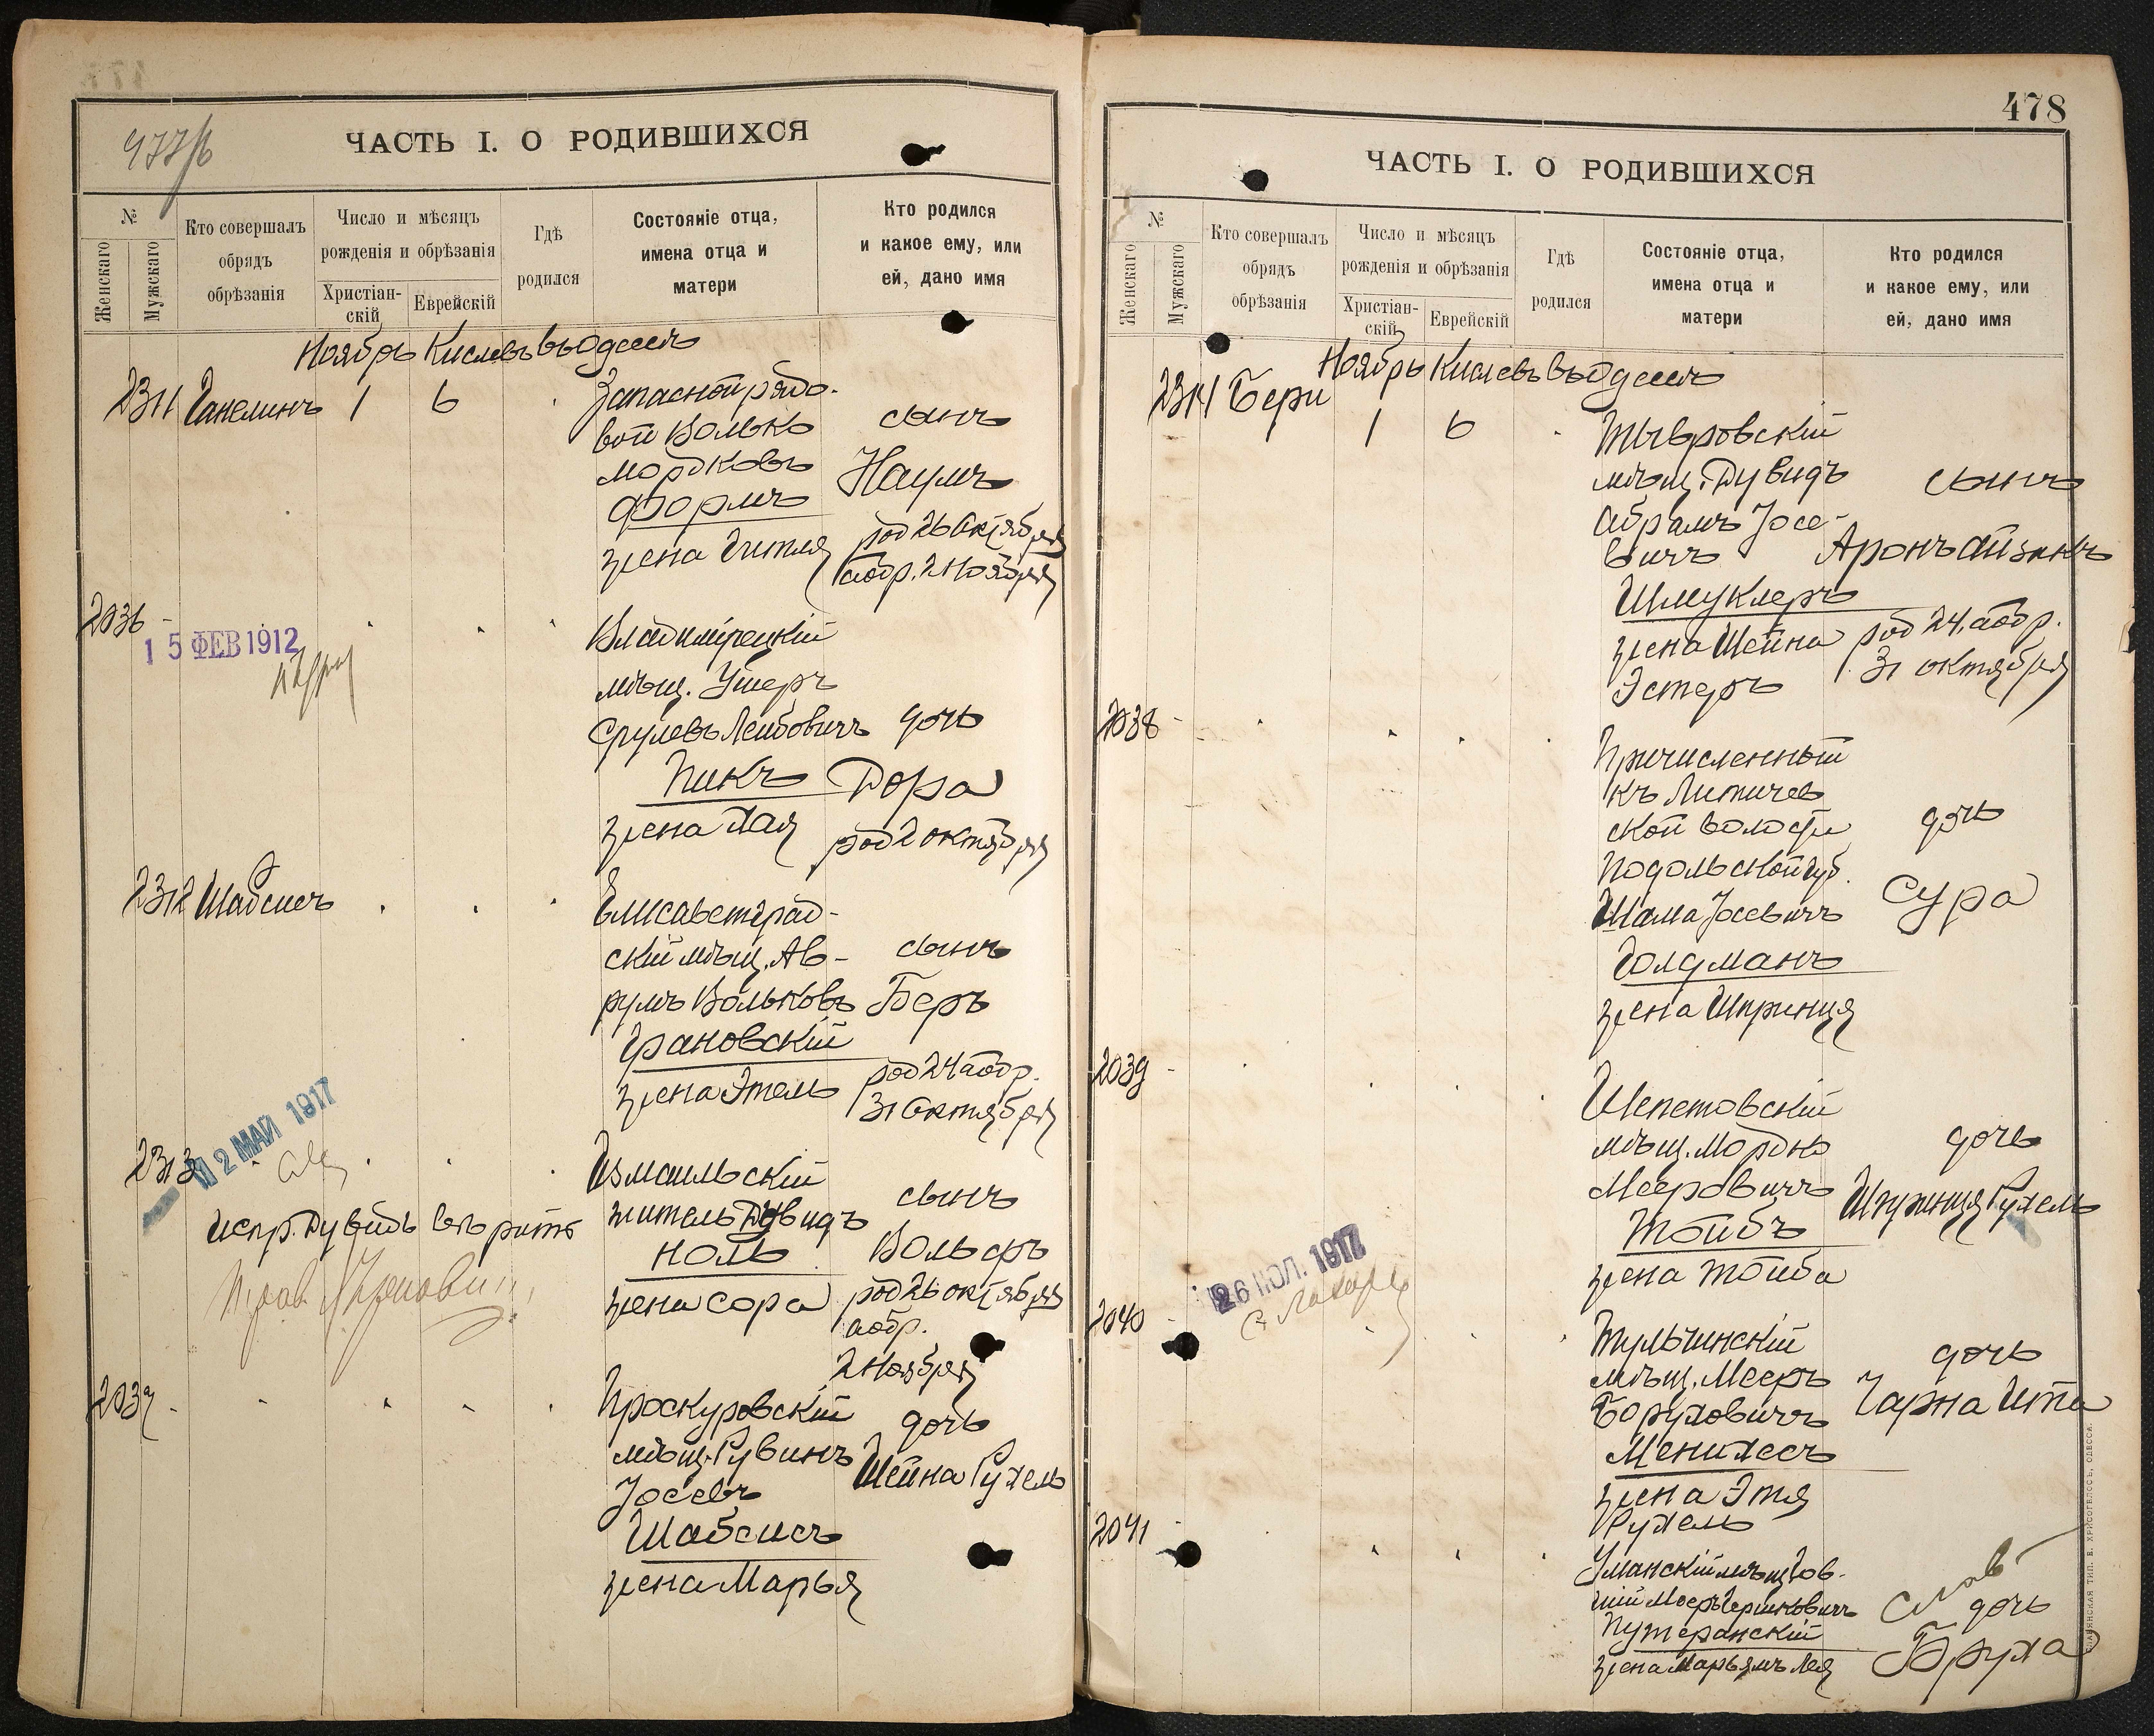 477/б
ЧАСТЬ I. О РОДИВШИХСЯ
№
Женскаго
Мужскаго
Кто совершалъ
обрядъ
обрѣзанія
Число и мѣсяцъ
рожденія и обрѣзанія
Христіан-
скій
Еврейскій
Гдѣ
родился
Состояніе отца,
имена отца и
матери
Кто родился
и какое ему, или
ей, дано имя
Ноябрь Кислевъ въ Одессѣ
2311 Ганелинъ 1 6 Запасной рядо-
вой Волько сынъ
Мордковъ Наумъ
Формъ
жена Гитля род 26 Октября
обр. 2 Ноября
2036 -
15 ФЕВ 1912
Владимірецкій
мѣщ. Ушеръ
Срулевъ Лейбовичъ дочь
Пикъ Дора
жена Хая род 2 октября
2312 Шабсисъ Елисаветград-
скій мѣщ. Ав- сынъ
румъ Вольковъ Беръ
Грановскій
жена Этель род 24 обр.
31 Октября
2313 12 МАЙ 1917
Измаильскій
житель Дувидъ сынъ
Испр. Дувидъ вѣрить
Ноль Вольфъ
жена Сора род 26 октября
обр.
2 Ноября
2037 - Проскуровскій
мѣщ. Рувинъ дочь
Іосевъ Шейна Рухель
Шабсисъ
жена Марья
478
ЧАСТЬ I. О РОДИВШИХСЯ
№
Женскаго
Мужскаго
Кто совершалъ
обрядъ
обрѣзанія
Число и мѣсяцъ
рожденія и обрѣзанія
Христіан-
скій
Еврейскій
Гдѣ
родился
Состояніе отца,
имена отца и
матери
Кто родился
и какое ему, или
ей, дано имя
Ноябрь Кислевъ въ Одессѣ
2314 Бери 1 6 Тывровскій
мѣщ. Дувидъ сынъ
Абрамъ Іосе-
вичъ Аронъ Айзикъ
Шмуклеръ
жена Шейна род 24, обр.
Эстеръ 31 октября
2038 - Причисленный
къ Литичев
ской волости дочь
Подольской губ.
Шама Іосевичъ Сура
Голдманъ
жена Шпринця
2039 - Шепетовскій
мѣщ. Мордко дочь
Мееровичъ Шпринця Рухель
Тойбъ
жена Тойба
26 ІЮЛ. 1917
2040 - Тульчинскій
мѣщ. Мееръ дочь
Боруховичъ Чарна Ита
Менихесъ
жена Этя
Рухель
2041 - Уманскій мѣщ. Гов-
шій Мееръ Гершковичъ дочь
Путеранскій
жена Марьямъ Лея Бруха
СЛАВЯНСКАЯ ТИП. Е. ХРИСОГЕЛОСЪ, ОДЕССА